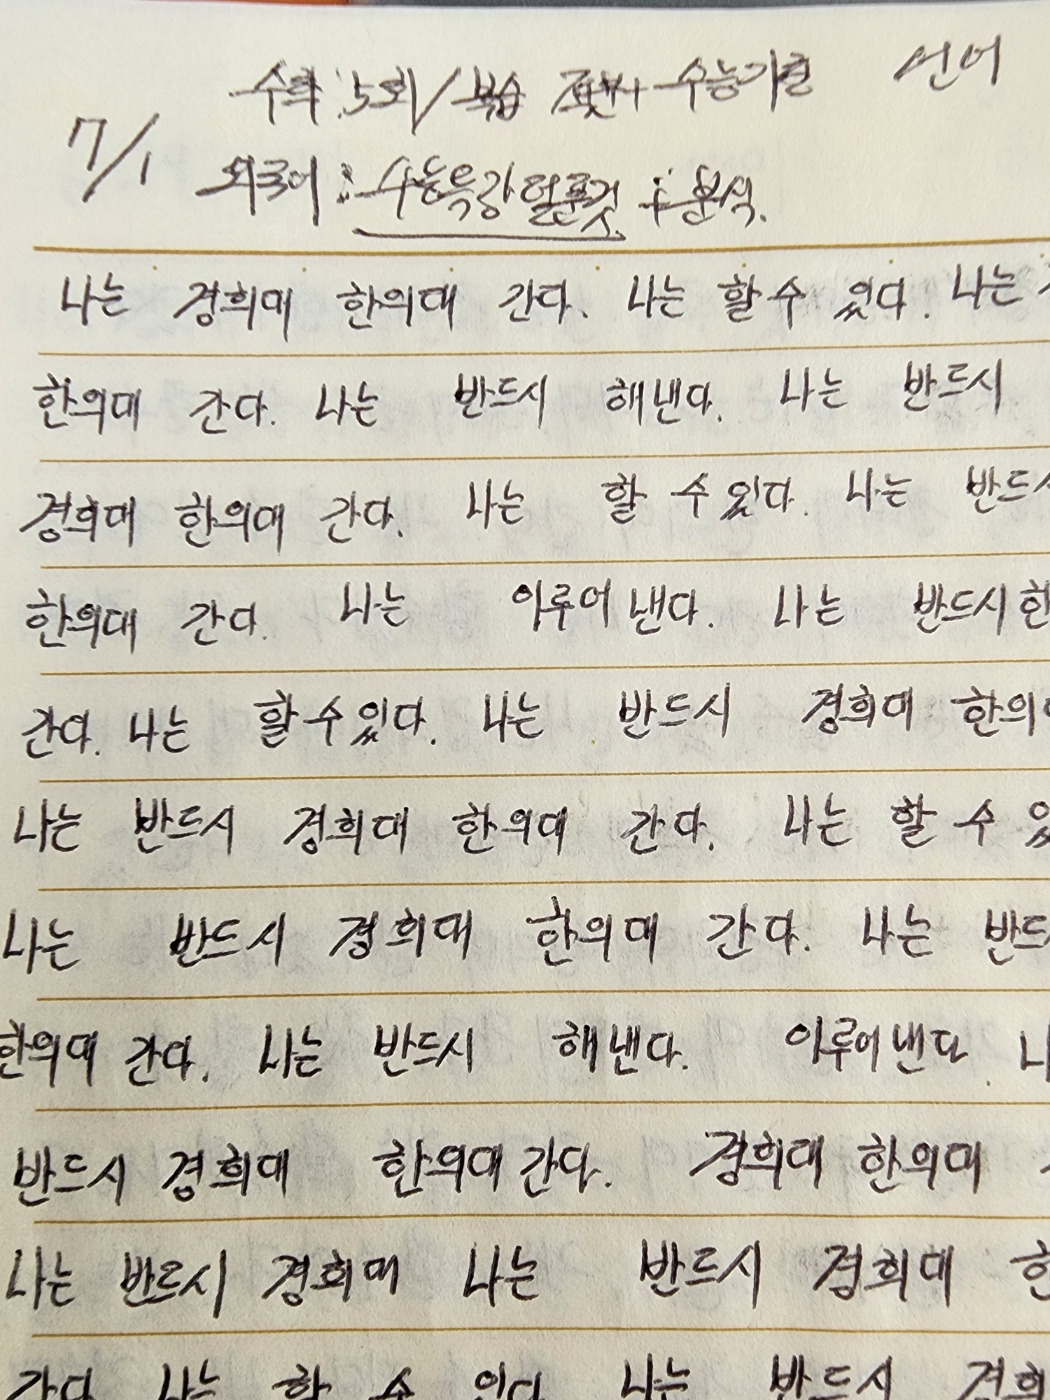 수학 5회/복습 수능기출 언어
7/1
외국어 : 수능특강 분석.
나는 경희대 한의대 간다. 나는 할 수 있다. 나는
한의대 간다. 나는 반드시 해낸다. 나는 반드시
경희대 한의대 간다. 나는 할 수 있다. 나는 반드시
한의대 간다. 나는 이루어 낸다. 나는 반드시 한
간다. 나는 할 수 있다. 나는 반드시 경희대 한의
나는 반드시 경희대 한의대 간다. 나는 할 수 있
나는 반드시 경희대 한의대 간다. 나는 반드
한의대 간다. 나는 반드시 해낸다. 이루어 낸다. 나
반드시 경희대 한의대 간다. 경희대 한의대
나는 반드시 경희대 나는 반드시 경희대 한
간다. 나는 할 수 있다. 나는 반드시 경희